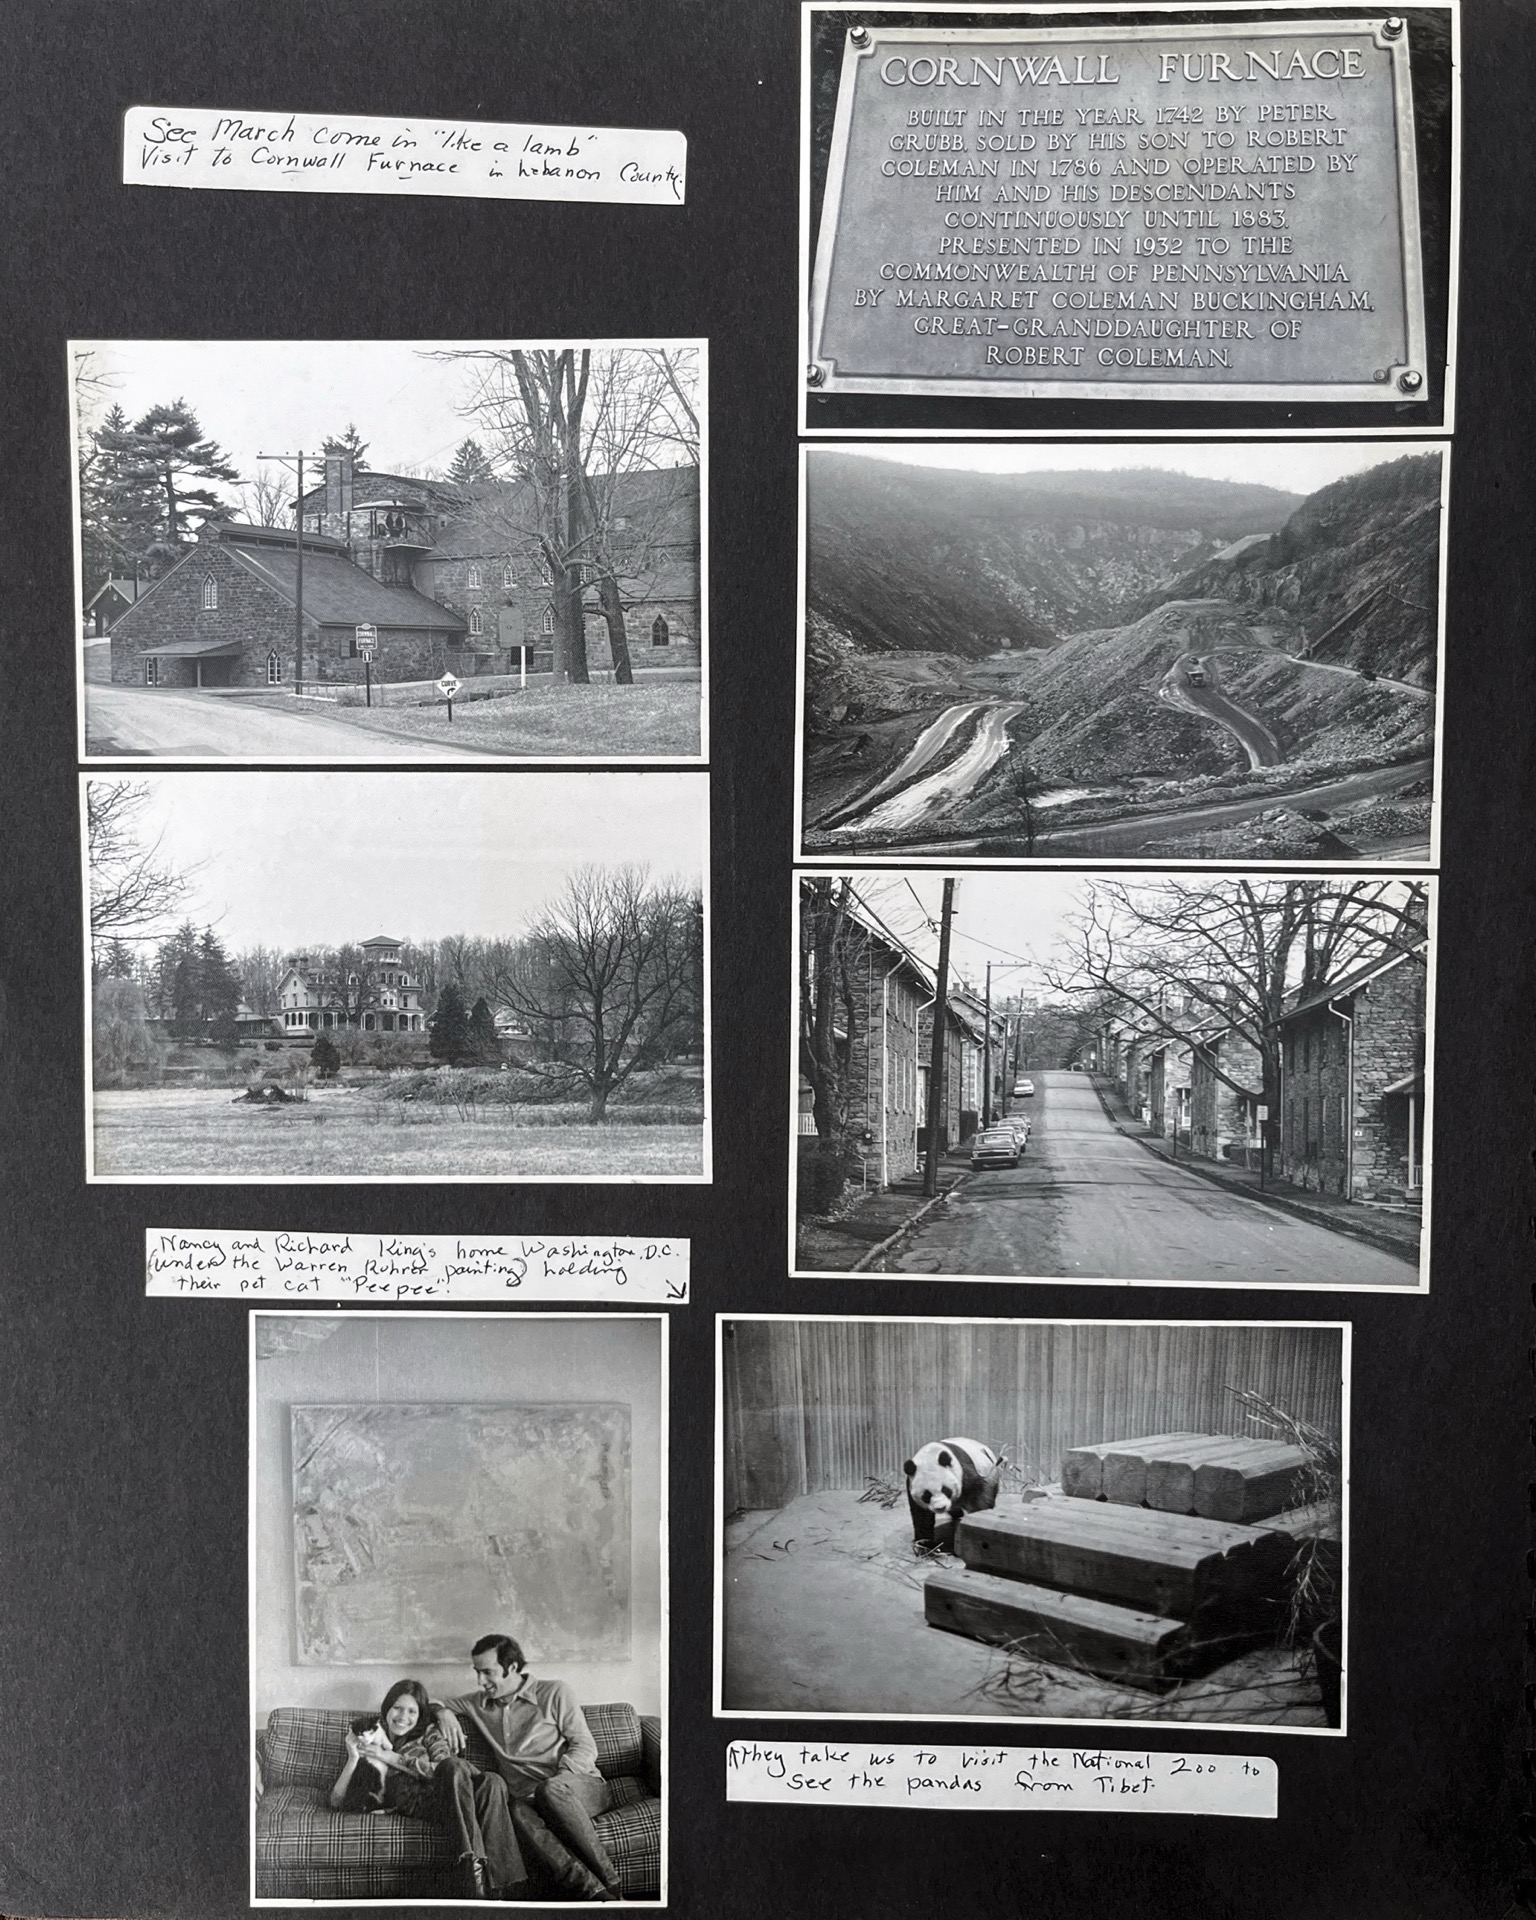 See March come in "like a lamb"
Visit to Cornwall Furnace in Lebanon County.
CORNWALL FURNACE
BUILT IN THE YEAR 1742 BY PETER
GRUBB, SOLD BY HIS SON TO ROBERT
COLEMAN IN 1786 AND OPERATED BY
HIM AND HIS DESCENDANTS
CONTINUOUSLY UNTIL 1883.
PRESENTED IN 1932 TO THE
COMMONWEALTH OF PENNSYLVANIA
BY MARGARET COLEMAN BUCKINGHAM,
GREAT-GRANDDAUGHTER OF
ROBERT COLEMAN.
CORNWALL
FURNACE
CURVE
Nancy and Richard King's home Washington, D.C.
(under the Warren Rohrer painting) holding
their pet cat "Peepee".
They take us to visit the National Zoo to
See the pandas from Tibet.